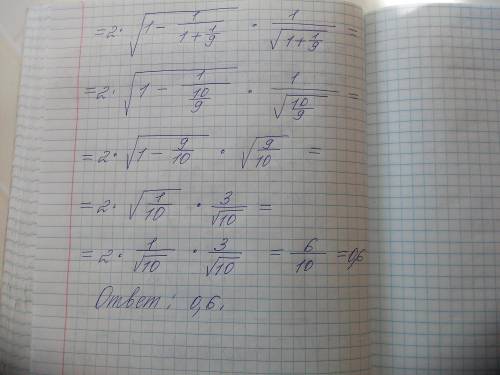 =2·√(1-1/(1+1/9))·1/√(1+1/9)=
=2·√(1-1/(10/9))·1/√(10/9)=
=2·√(1-9/10)·√(9/10)=
=2·√(1/10)·3/√10=
=2·1/√10·3/√10=6/10=0,6
Ответ: 0,6.